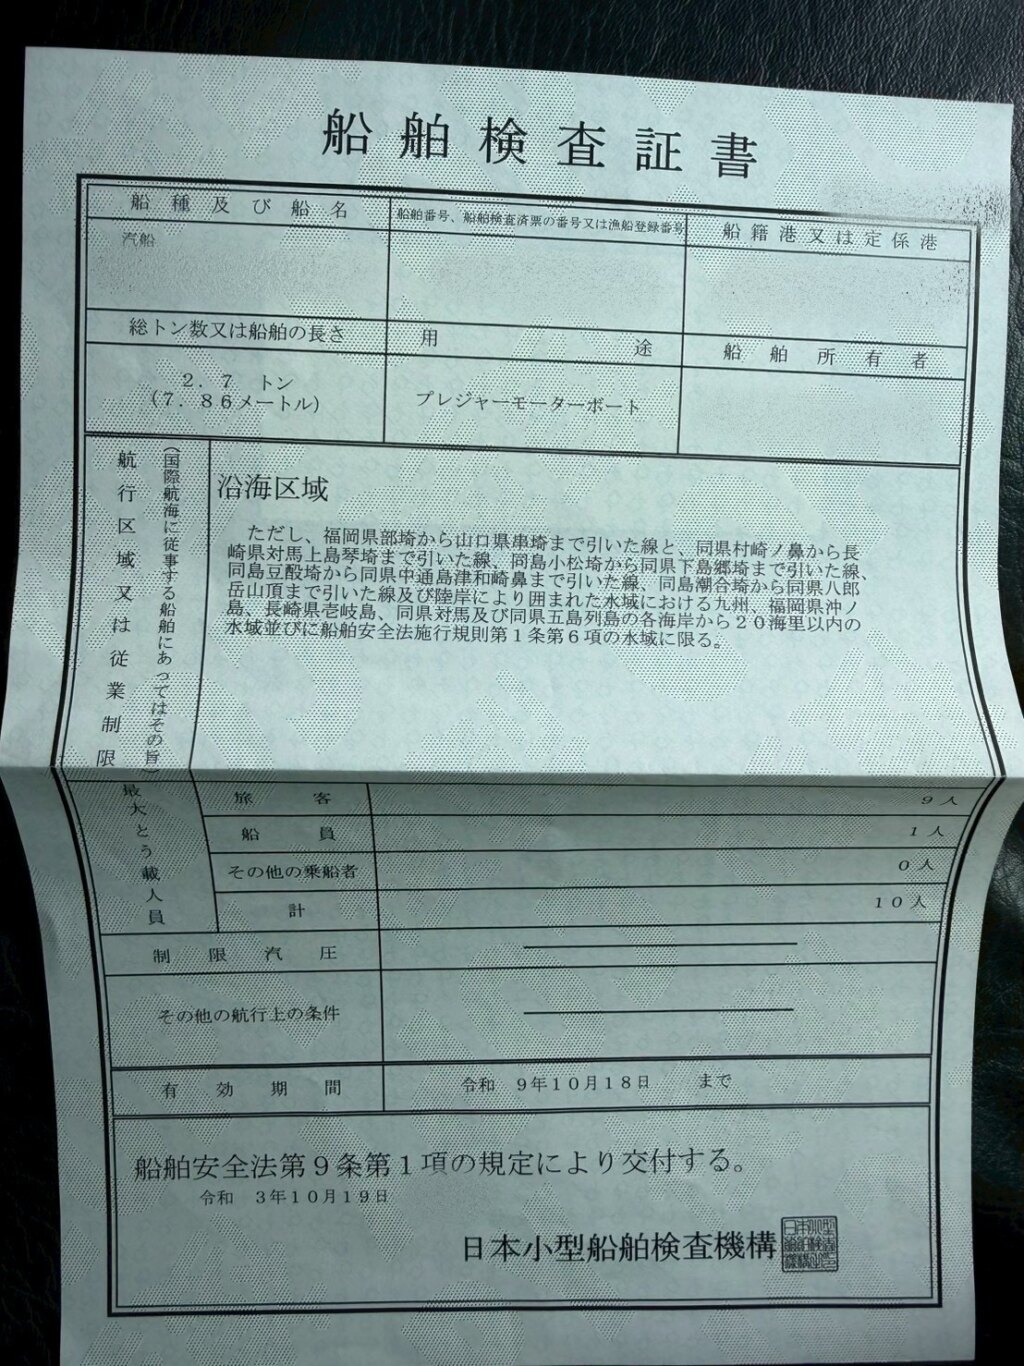 船舶検査証書
船種及び船名
船舶番号、船舶検査済票の番号又は漁船登録番号
船籍港又は定係港
汽船
総トン数又は船舶の長さ
用途
船舶所有者
2.7 トン
(7.86メートル)
プレジャーモーターボート
航行区域又は従業制限
(国際航海に従事する船舶にあってはその旨)
沿海区域
ただし、福岡県部埼から山口県串埼まで引いた線と、同県村崎ノ鼻から長
崎県対馬上島琴埼まで引いた線、同島小松埼から同県下島郷埼まで引いた線、
同島豆酘埼から同県中通島津和崎鼻まで引いた線、同島潮合埼から同県八郎
岳山頂まで引いた線及び陸岸により囲まれた水域における九州、福岡県沖ノ
島、長崎県壱岐島、同県対馬及び同県五島列島の各海岸から20海里以内の
水域並びに船舶安全法施行規則第1条第6項の水域に限る。
最大とう載人員
旅客 9人
船員 1人
その他の乗船者 0人
計 10人
制限汽圧
その他の航行上の条件
有効期間 令和 9年10月18日 まで
船舶安全法第9条第1項の規定により交付する。
令和 3年10月19日
日本小型船舶検査機構